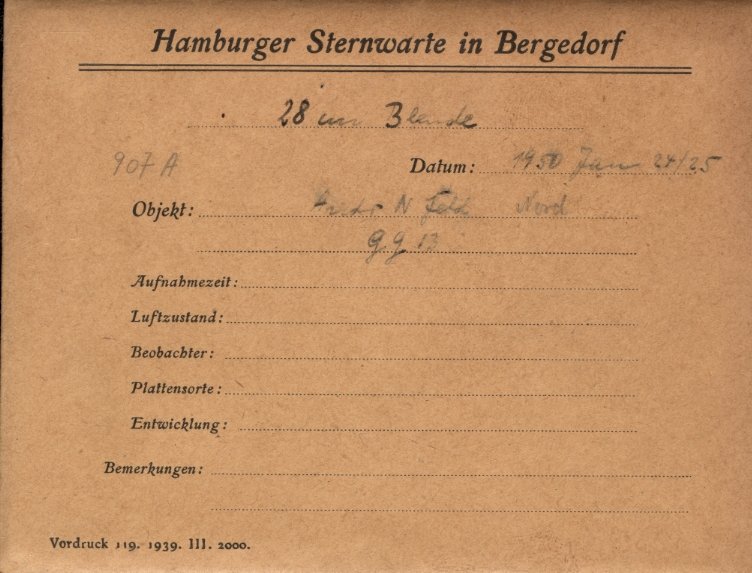 Hamburger Sternwarte in Bergedorf
28 cm Blende
907 A
Datum: 1950 Jun 24/25
Objekt: N Feld Nord
gg 13
Aufnahmezeit:
Luftzustand:
Beobachter:
Plattensorte:
Entwicklung:
Bemerkungen:
Vordruck 119. 1939. III. 2000.